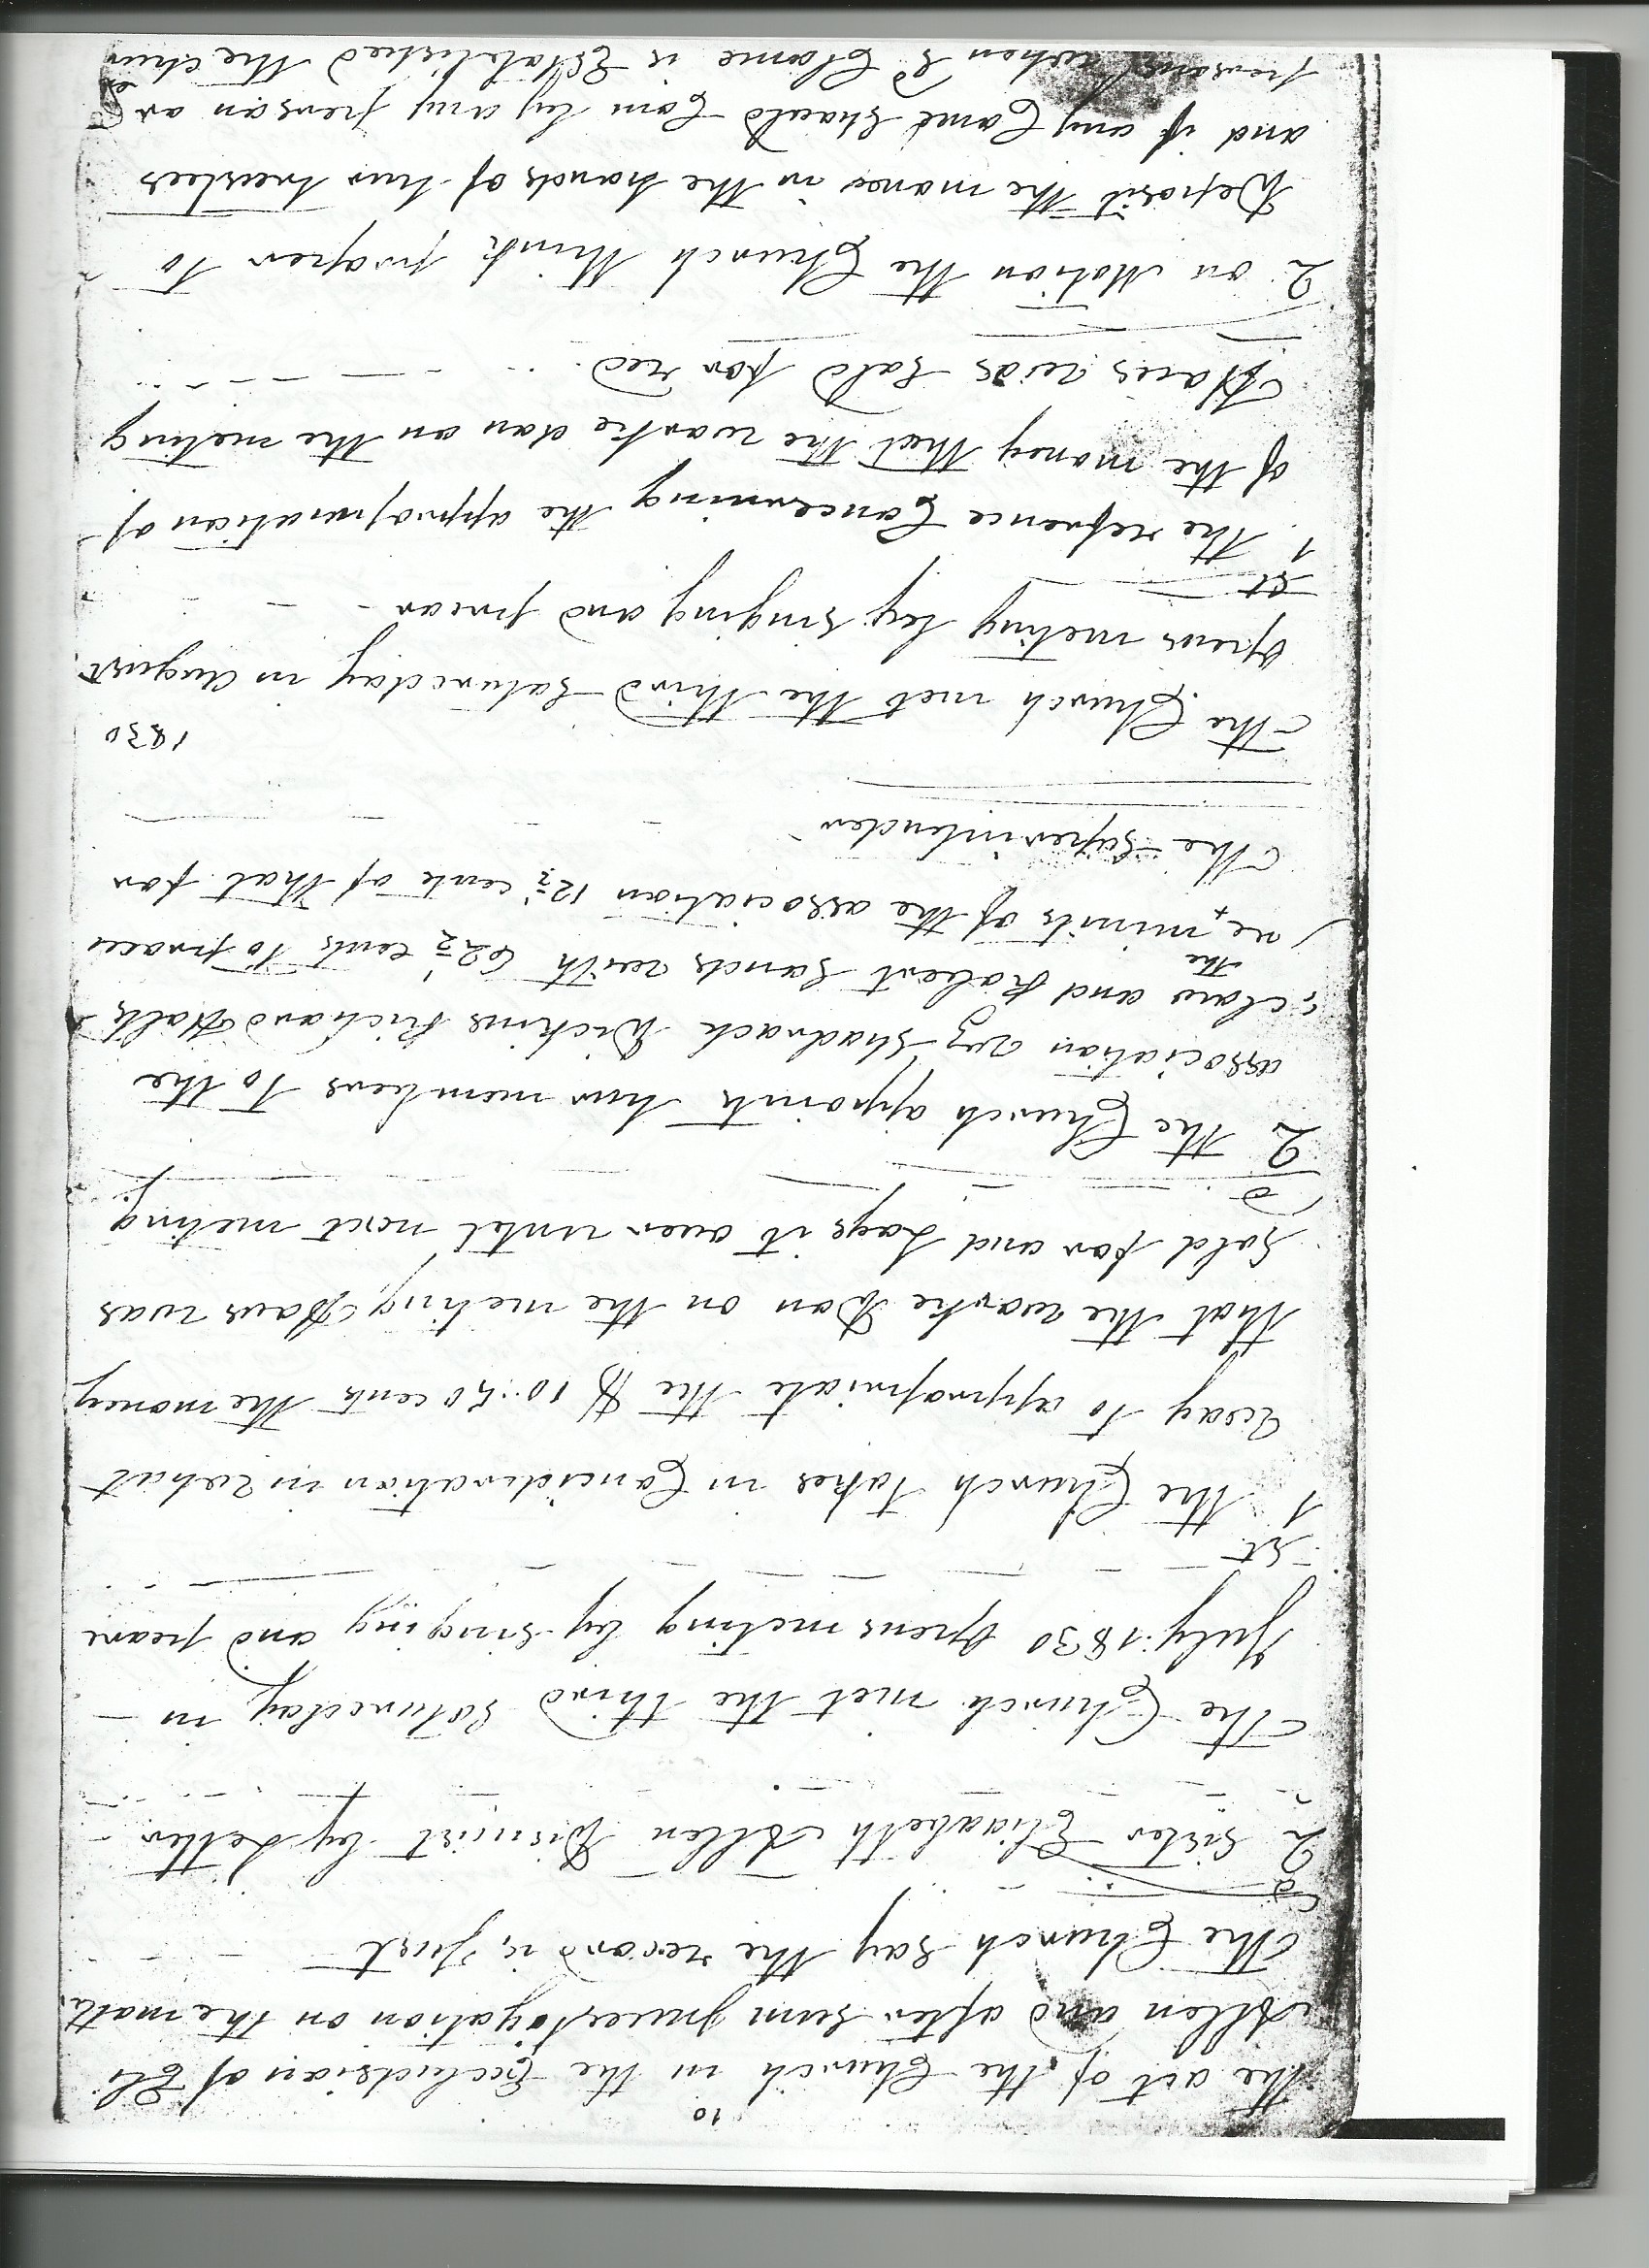 10
the act of the Church in the Excludsian of Eli
Allen and after sum jnvestigation on the matt
The Church Say the record is just
2d Sister Elisabeth Allen Dismist by Letter
The Church met the third Saturdday in
July 1830 opens meting by singing and prare
1st the Church takes in Concideration in what
way to appropriate the $ 10:50 cents the money
that the worke Don on the meting Hous was
Sold for and Lays it over untel next meting
2d the Church appoints hur members to the
association viz Shadrack Dickins Richard Hall
and Robert Sands with 62½ cents to procu
re the minits of the association 12½ cents of that for
The Superintender
1830
The Church met the third Saturdday in August
opens meting by singing and prear
1st the refrence Concerning the appropriation of
of the money that the worke don on the meting
Hous was Sold for red
2 on Motion the Church think proper to
Deposit the mony in the hands of hur trustees
and if any Came Should Com by any person or
persons when Sd Clame is Established the chur